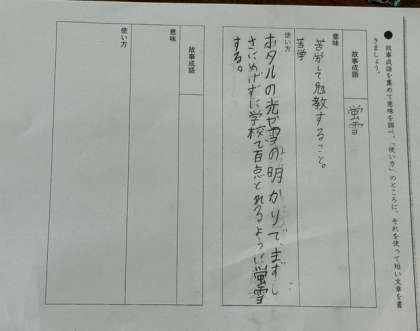 ●故事成語を集めて意味を調べ、「使い方」のところに、それを使って短い文章を書
きましょう。
故事成語
蛍雪
意味
苦労して勉教すること。
苦学
使い方
ホタルの光や雪の明かりで、まずし
さにめげずに学校で百点とれるように蛍雪
する。
故事成語
意味
使い方